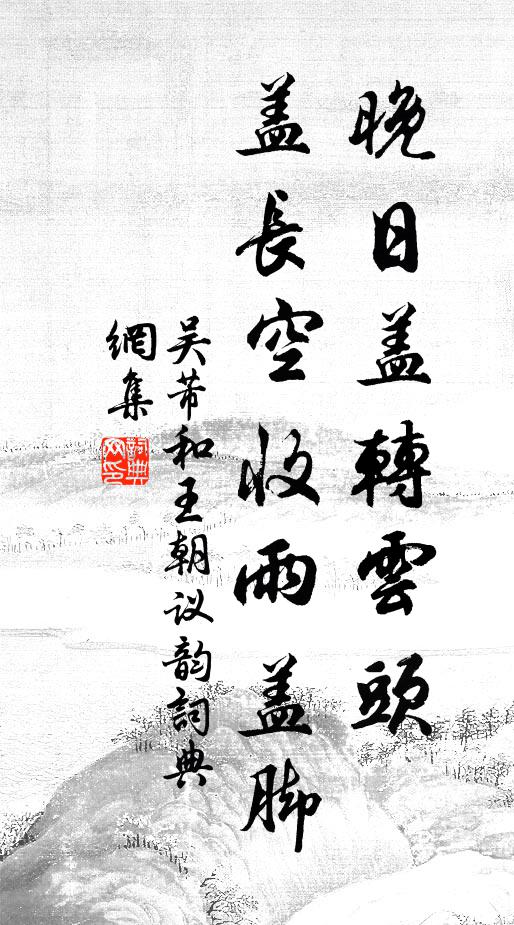 晚日盖轉雲頭
盖長空收雨盖脚
吴芾和王朝议韵詞典
網集
詞典網印